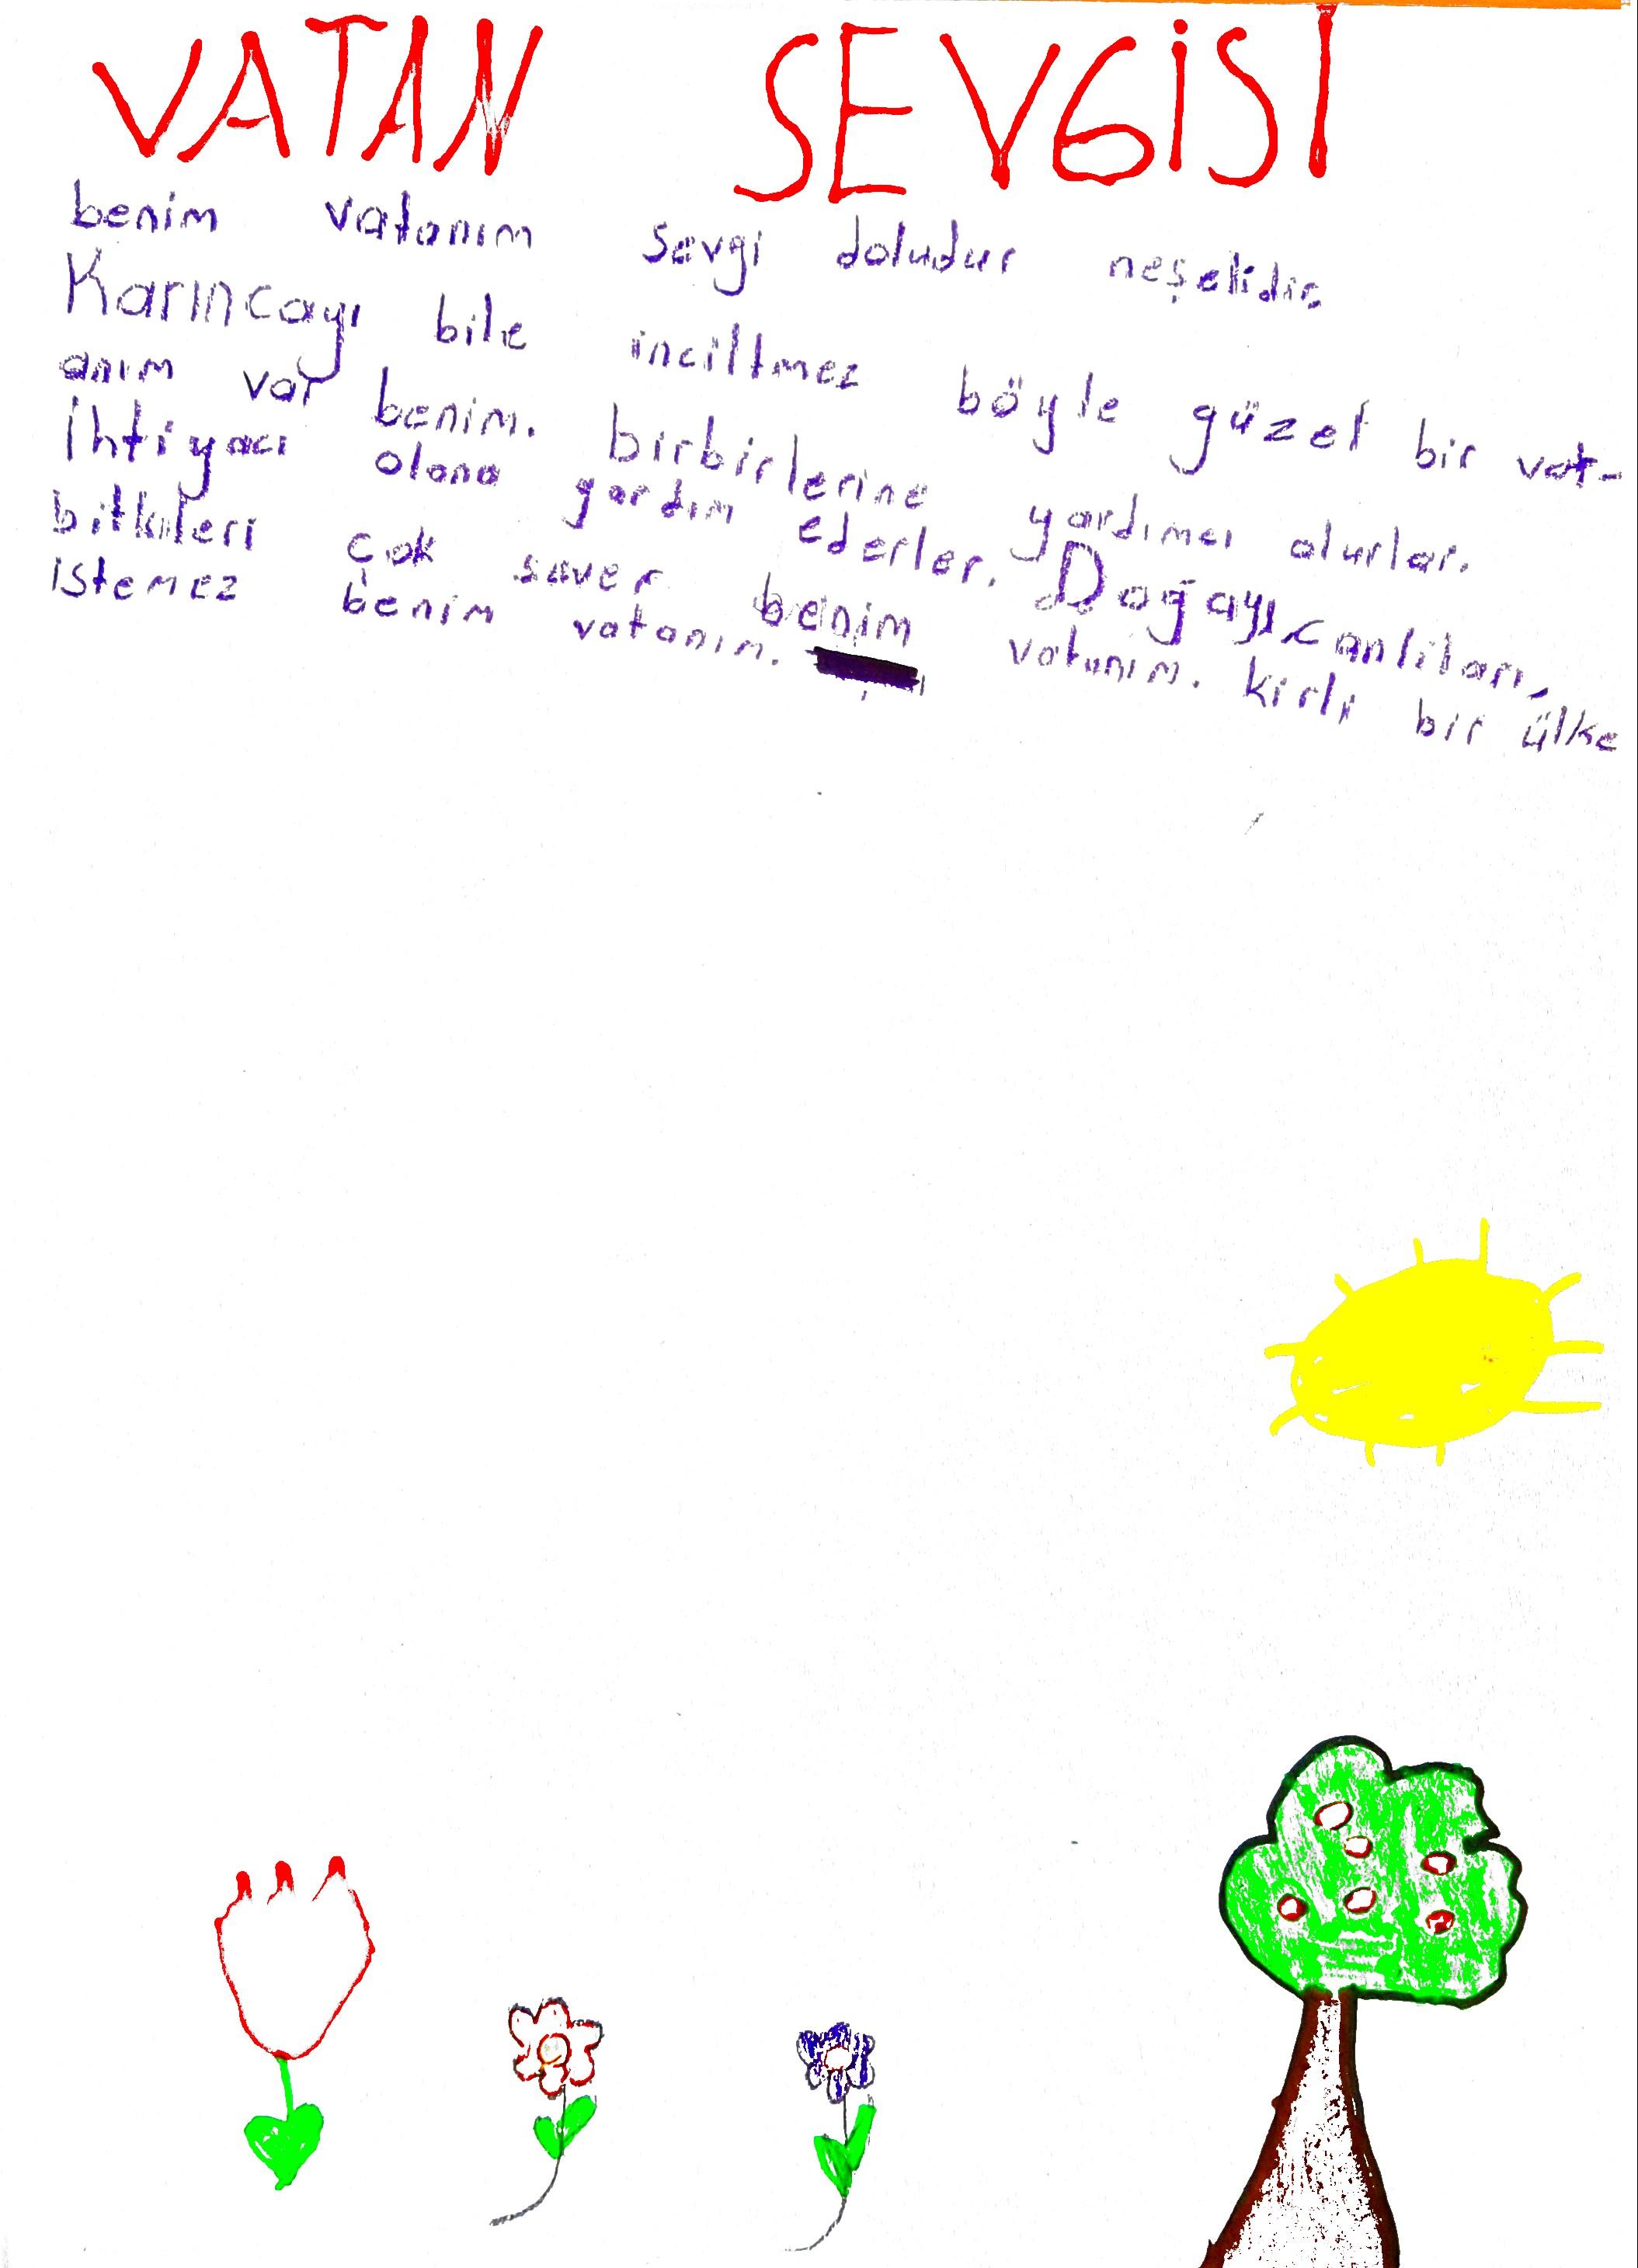 VATAN SEVGİSİ
benim vatanım sevgi doludur neşelidir.
Karıncayı bile inciltmez böyle güzel bir vat-
anım var benim. birbirlerine yardımcı olurlar.
İhtiyacı olana yardım ederler. Doğayı, canlıları,
bitkileri çok sever benim vatanım. kirli bir ülke
istemez benim vatanım.